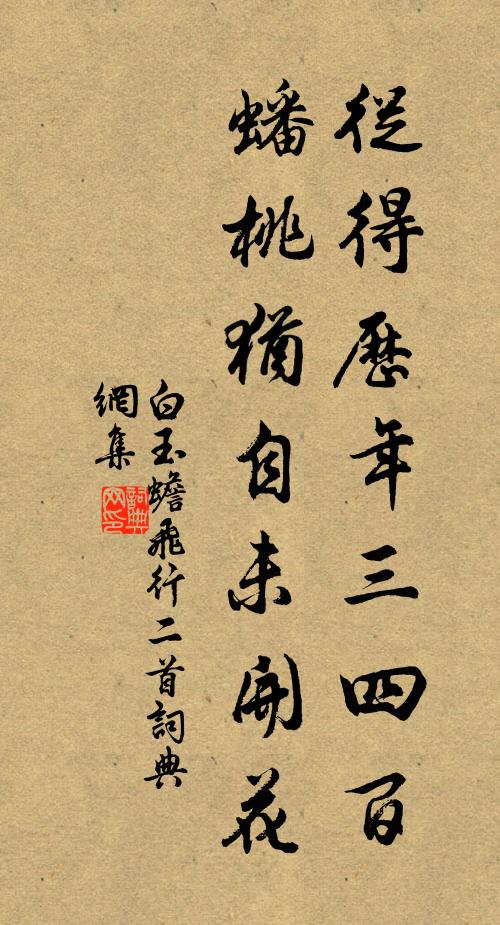 從得歷年三四百
蟠桃猶自未開花
白玉蟾飛行二首詞典
網集
詞典
网印